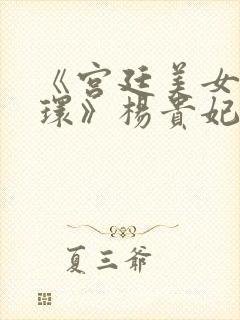 《宫廷美女
环》杨贵妃
夏三爷